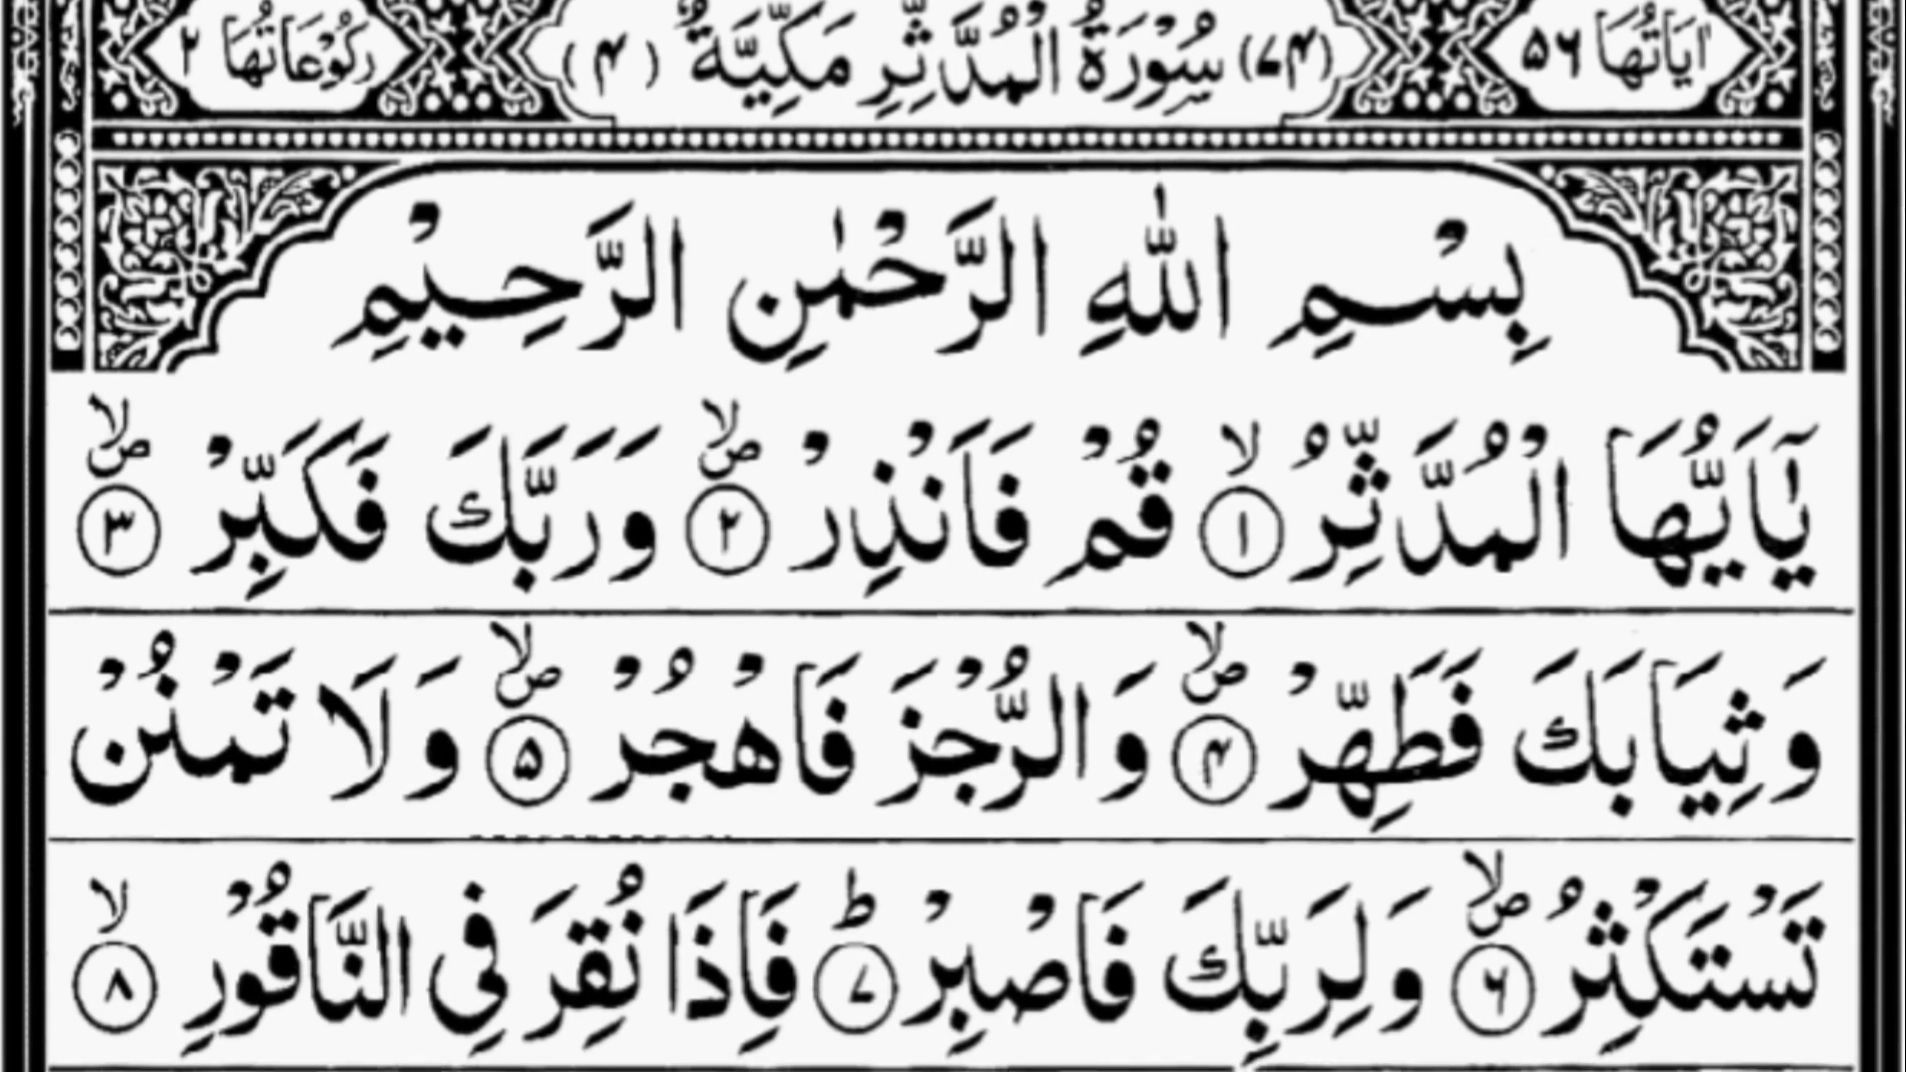 اٰيَاتُهَا ۵۶ (۷۴) سُوْرَةُ الْمُدَّثِّرِ مَكِّيَّةٌ (۴) رُكُوْعَاتُهَا ۲
بِسْمِ اللّٰهِ الرَّحْمٰنِ الرَّحِيْمِ
يٰۤاَيُّهَا الْمُدَّثِّرُ ۙ﴿۱﴾ قُمْ فَاَنْذِرْ ۪ۙ﴿۲﴾ وَرَبَّكَ فَكَبِّرْ ۪ۙ﴿۳﴾
وَثِيَابَكَ فَطَهِّرْ ۪ۙ﴿۴﴾ وَالرُّجْزَ فَاهْجُرْ ۪ۙ﴿۵﴾ وَلَا تَمْنُنْ
تَسْتَكْثِرُ ۪ۙ﴿۶﴾ وَلِرَبِّكَ فَاصْبِرْ ؕ﴿۷﴾ فَاِذَا نُقِرَ فِى النَّاقُوْرِ ۙ﴿۸﴾